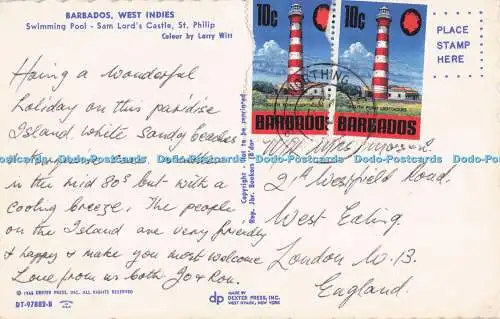 BARBADOS, WEST INDIES
Swimming Pool - Sam Lord's Castle, St. Philip
Colour by Larry Witt
Having a wonderful
holiday on this paradise
Island white sandy beaches
in the mid 80s but with a
cooling breeze. The people
on the Island are very friendly
& happy & make you most welcome
Love from us both Jo & Ron.
DT-97882-B
© 1968 DEXTER PRESS, INC. ALL RIGHTS RESERVED
Copyright - Not to be reprinted
dp
MADE BY
DEXTER PRESS, INC.
WEST NYACK, NEW YORK
10c
BARBADOS
10c
SOUTH POINT LIGHTHOUSE
BARBADOS
WORTHING
PLACE
STAMP
HERE
21A Westfield Road
West Ealing
London W.13.
England.
Dodo-Postcards Dodo-Postcards Dodo-Postcards Dodo-Postcards